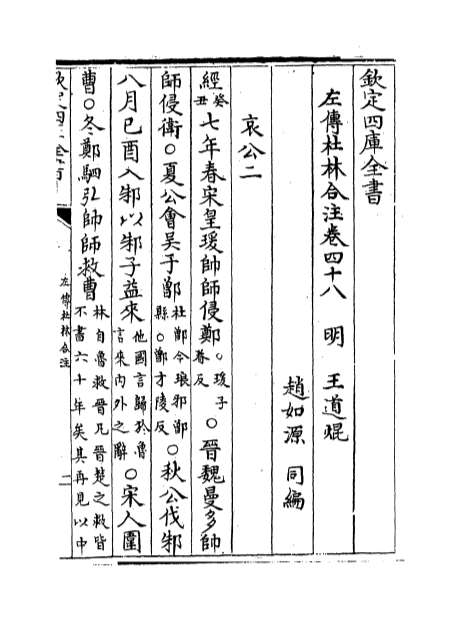 欽定四庫全書
左傳杜林合注卷四十八 明 王道焜
趙如源 同編
哀公二
經癸丑七年春宋皇瑗帥師侵鄭。瑗于眷反○晉魏曼多帥
師侵衛○夏公會吳于鄫杜鄫今琅邪鄫縣○鄫才陵反○秋公伐邾
八月己酉入邾以邾子益來他國言歸於魯言來內外之辭○宋人圍
曹○冬鄭駟弘帥師救曹林自魯救晉凡晉楚之救皆不書六十年矣其再見以中
左傳杜林合注